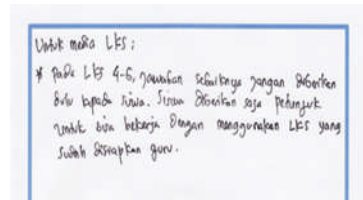 Untuk media LKS :
* Pada LKS 4-6, jawaban sebaiknya jangan diberikan
dulu kepada siswa. Siswa diberikan saja petunjuk
untuk bisa bekerja dengan menggunakan LKS yang
sudah disiapkan guru.